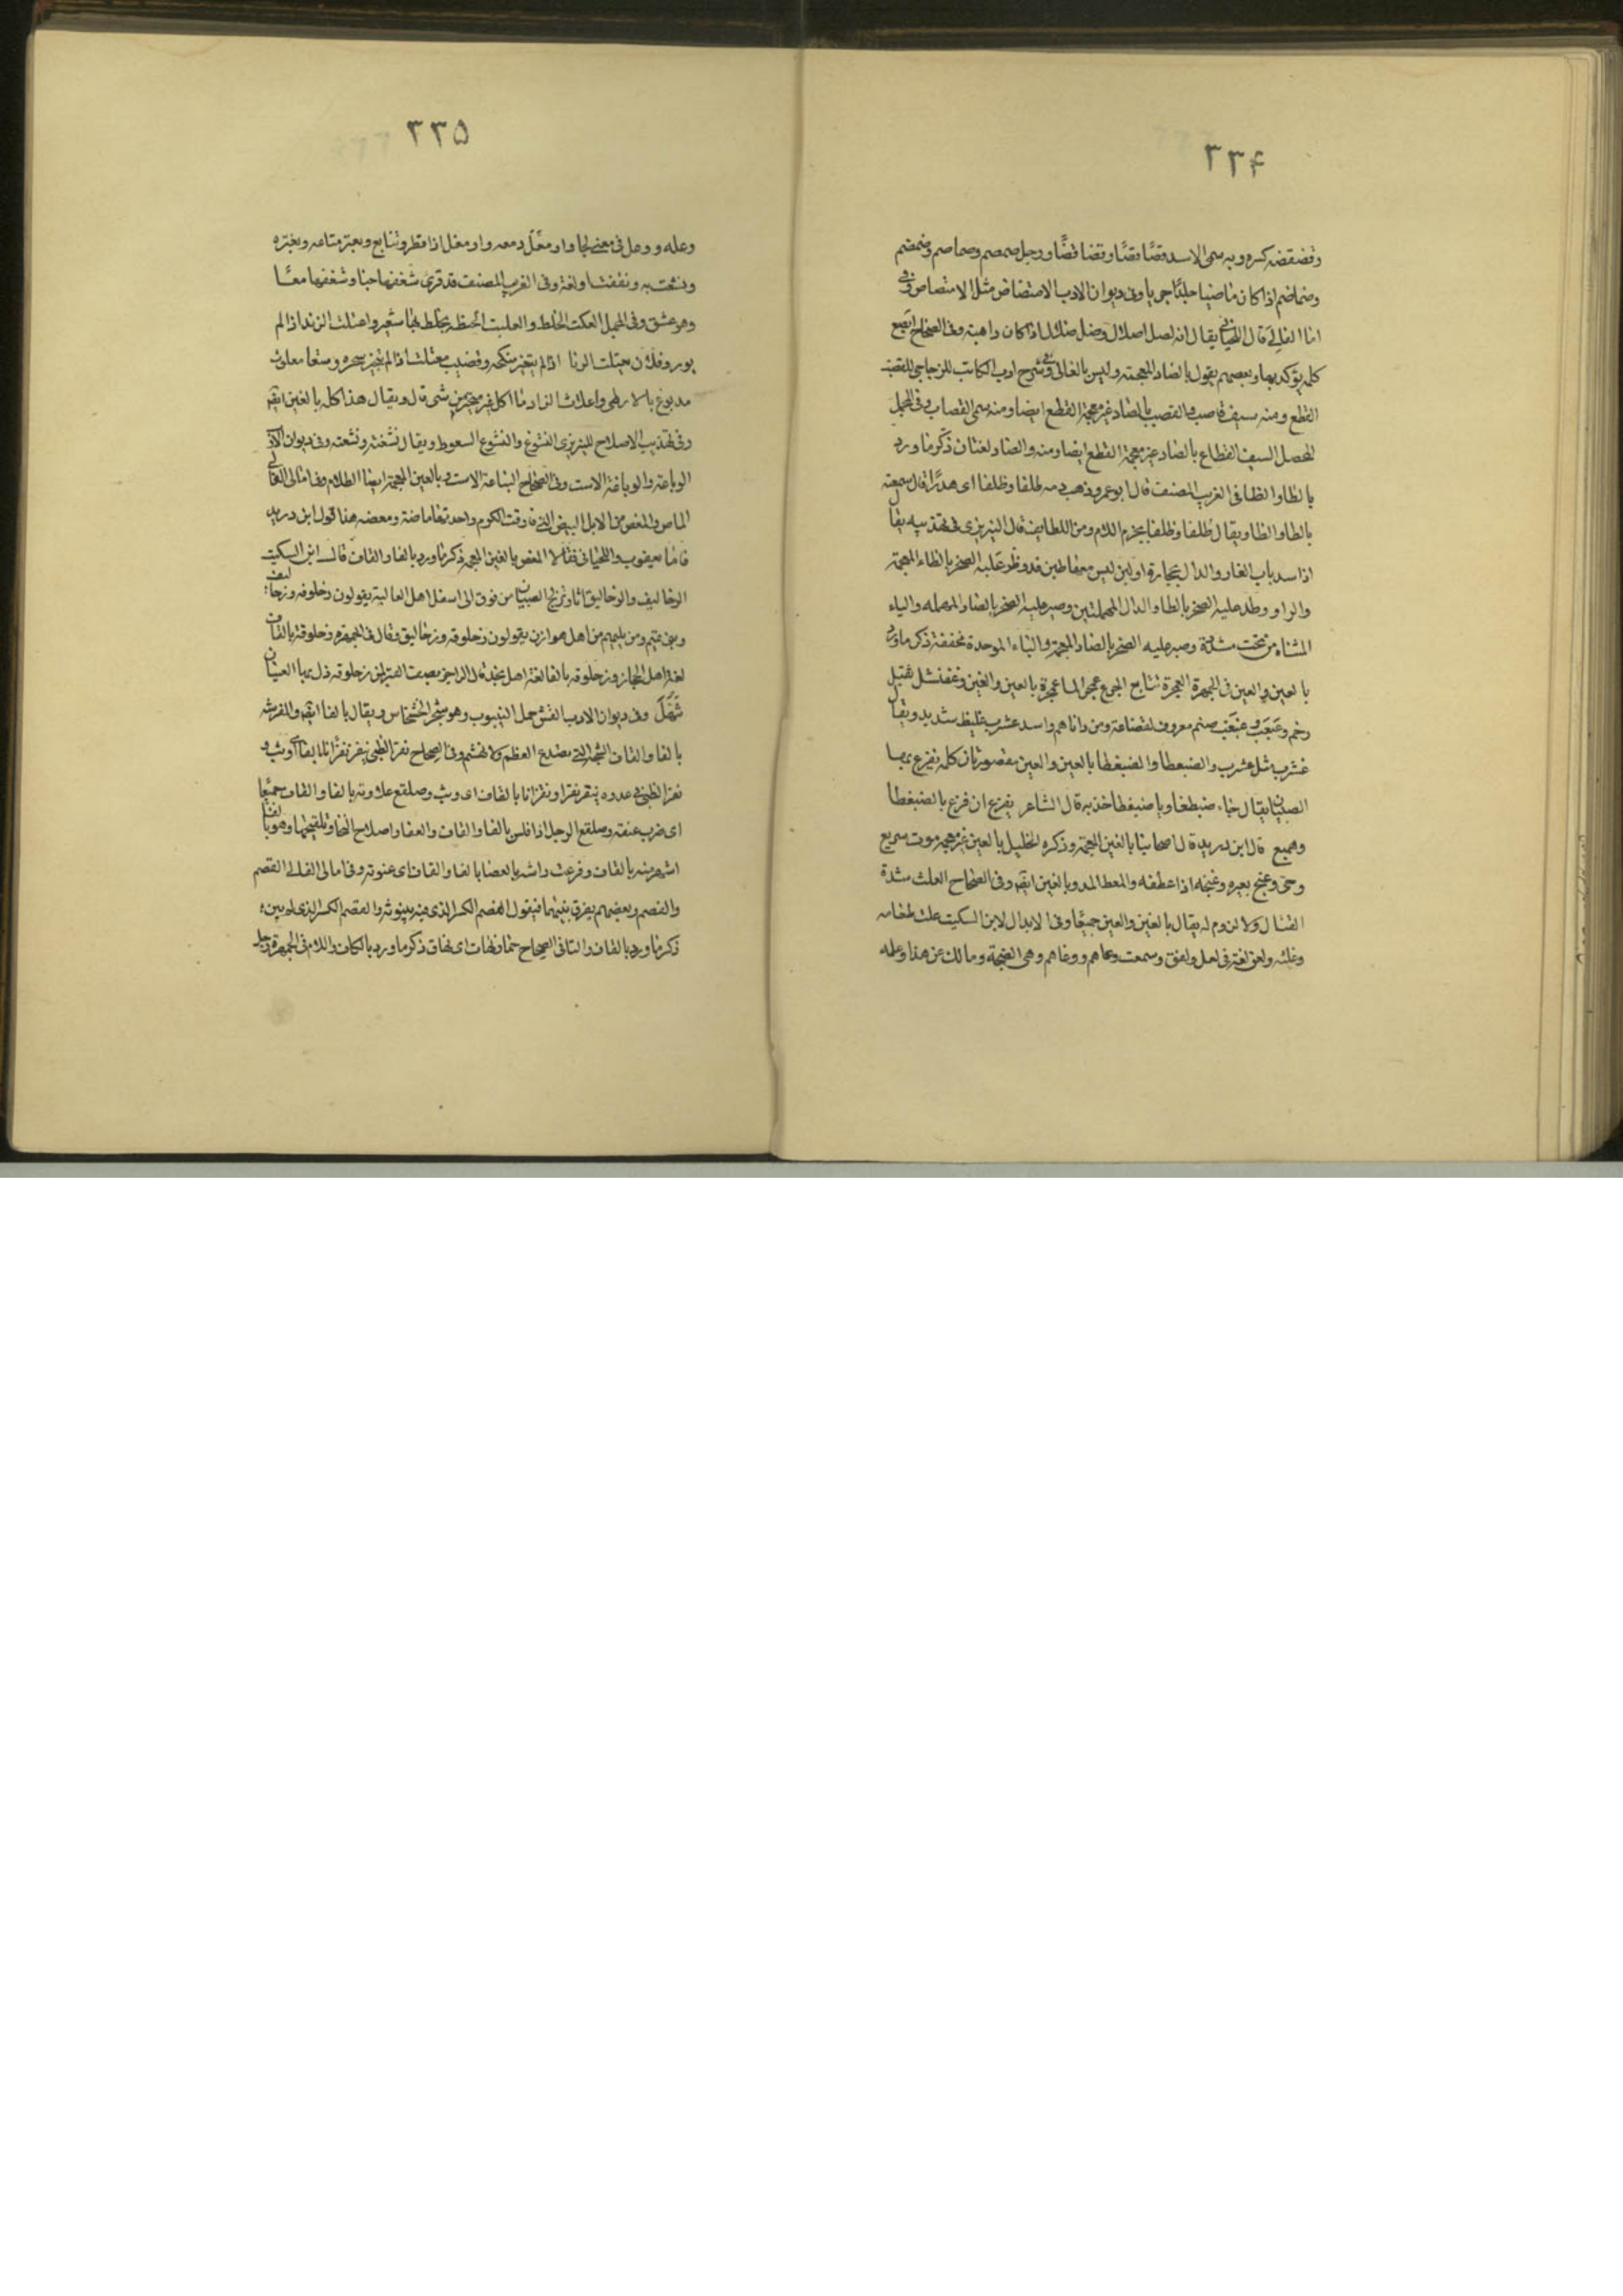 ٣٣۴
وقضقضه كسره وبه سمى الاسد قصاقصا وقضاقضا ورجل صمصم وصماصم وضمضم
وضماضم اذا كان ماضيا جلدا جريا وفى ديوان الادب الامتضاض مثل الامتصاص وفى
امالى القالى قال اللحيانى يقال انه لصل اصلال وضل ضلال اذا كان داهية وفى الصحاح ابصع
كلمة يؤكد بها وبعضهم يقول بالضاد المعجمة وليس بالعالى وفى شرح ادب الكاتب للزجاجى القضب
القطع ومنه سيف قاضب والقصب بالصاد غير معجمة القطع ايضا ومنه سمى القصاب وفى المجمل
المحصل السيف القطاع بالصاد غير معجمة القطع ايضا ومنه والضاد لغتان ذكر ما ورد
بالطا والظا فى الغريب المصنف قال ابو عمرو ذهب دمه طلفا وظلفا اى هدرا قال سمعته
بالطا والظا ويقال طلفا وظلفا بجزم اللام ومن اللطايف قال التبريزى فى تهذيبه يقال
اذا سد باب الغار والدال بحجارة اولبن ليس معها طين قد وظر عليه الصخر بالظاء المعجمة
والراء ووطد عليه الصخر بالطا والدال المهملتين وصير عليه الصخر بالصاد المهمله والياء
المثناه من تحت مشددة وضبر عليه الصخر بالضاد المعجمة والباء الموحدة مخففة ذكر ما ورد
بالعين والغين فى الجمهرة العجرة تتابع الجرع عجر الماء عجرة بالعين والغين وعفنشل ثقيل
وخم وعبعب وغبغب صنم معروف لقضاعة ومن داناهم واسد عشرب غليظ شديد ويقال
غشرب مثل عشرب والضبعطا والضبغطا بالعين والغين مقصورتان كلمة يفزع بها
الصبيان يقال جاء ضبطغا ويا ضبغطا خذيه قال الشاعر يفزع ان فزع بالضبغطا
وهميع قال ابن دريد قال اصحابنا بالغين المعجمة وذكره الخليل بالعين غير معجمة موت سريع
وحى وعنج بعيره وغنجه اذا عطفه والمعط المد وبالغين ايضا وفى الصحاح العلث شدة
القتال واللزوم له يقال بالعين والغين جميعا وفى الابدال لابن السكيت علث طعامه
وغلثه ولعن لغة فى لعل ولغن وسمعت وعاهم ووغاهم وهى الضجة وما لك عن هذا وعله
٣٣۵
وعله ووعل فى معنى لجا وارمعل دمعه وارمغل اذا قطر وتتابع وبعثر متاعه وبغثره
ونشعت به ونشغت اولعت وفى الغريب المصنف قد قرى شغفها حبا وشعفها معا
وهو عشق وفى المجمل العكث الخلط والعليث الحنطة يخلط بها شعير واعتلث الزند اذا لم
يور وفلان يعتلث الزنا اذا لم يتخير منكحه وقضيب معتلث اذا لم يتخير شجره وسقا معلوث
مدبوغ بالارطى واعلاث الزاد ما اكل غير متخير من شى قال ويقال هذا كله بالغين ايضا
وفى تهذيب الاصلاح للتبريزى النشوغ والنشوع السعوط ويقال نشغته ونشعته وفى ديوان الادب
الوباعة والوباغة الاست وفى الصحاح النباعة الاست وبالغين المعجمة ايضا الظلام وفى امالى القالى
الماص والمغص من الابل البيض التى قاربت الكرم واحدتها ماصة ومعصه هذا قول ابن دريد
فاما يعقوب واللحيانى فقالا المغص بالغين المعجمة ذكر ما ورد بالفا والقاف قال ابن السكيت
الزحاليف والزحاليق اثار تزلج الصبيان من فوق الى اسفل اهل العالية يقولون زحلوفه وزحاليف
وبنى تميم ومن يليهم من اهل هوازن يقولون زحلوقه وزحاليق وقال فى الجمهرة زحلوقة بالقاف
لغة اهل الحجاز وزحلوفه بالفا لغة اهل نجد قال الراجز يصف القبر لمن زحلوقه زل بها العينان
تنهل وفى ديوان الادب الفش حمل الينبوب وهو شجر الخشخاش ويقال بالفا ايضا والمفرشة
بالفا والقاف الشجة التى تصدع العظم ولا تهشم وفى الصحاح نفز الظبى ينفز نفزانا بالفا اى وثب و
نقز الظبى فى عدوه ينقز نقزا ونقزانا بالقاف اى وثب وصلقع علاوته بالفا والقاف جميعا
اى ضرب عنقه وصلقع الرجل اذا افلس بالفا والقاف والعفار اصلاح النخل وتلقيحها وهو بالفا
اشهر منه بالقاف وقرعت راسه بالعصا بالفا والقاف اى علوته وفى امالى القالى القصم
والفصم وبعضهم يفرق بينهما فيقول القصم الكسر الذى فيه بينونة والفصم الكسر الذى لم يبن
ذكر ما ورد بالقاف والتا فى الصحاح ذكر ما ورد بالكاف واللام فى الجمهرة رجل